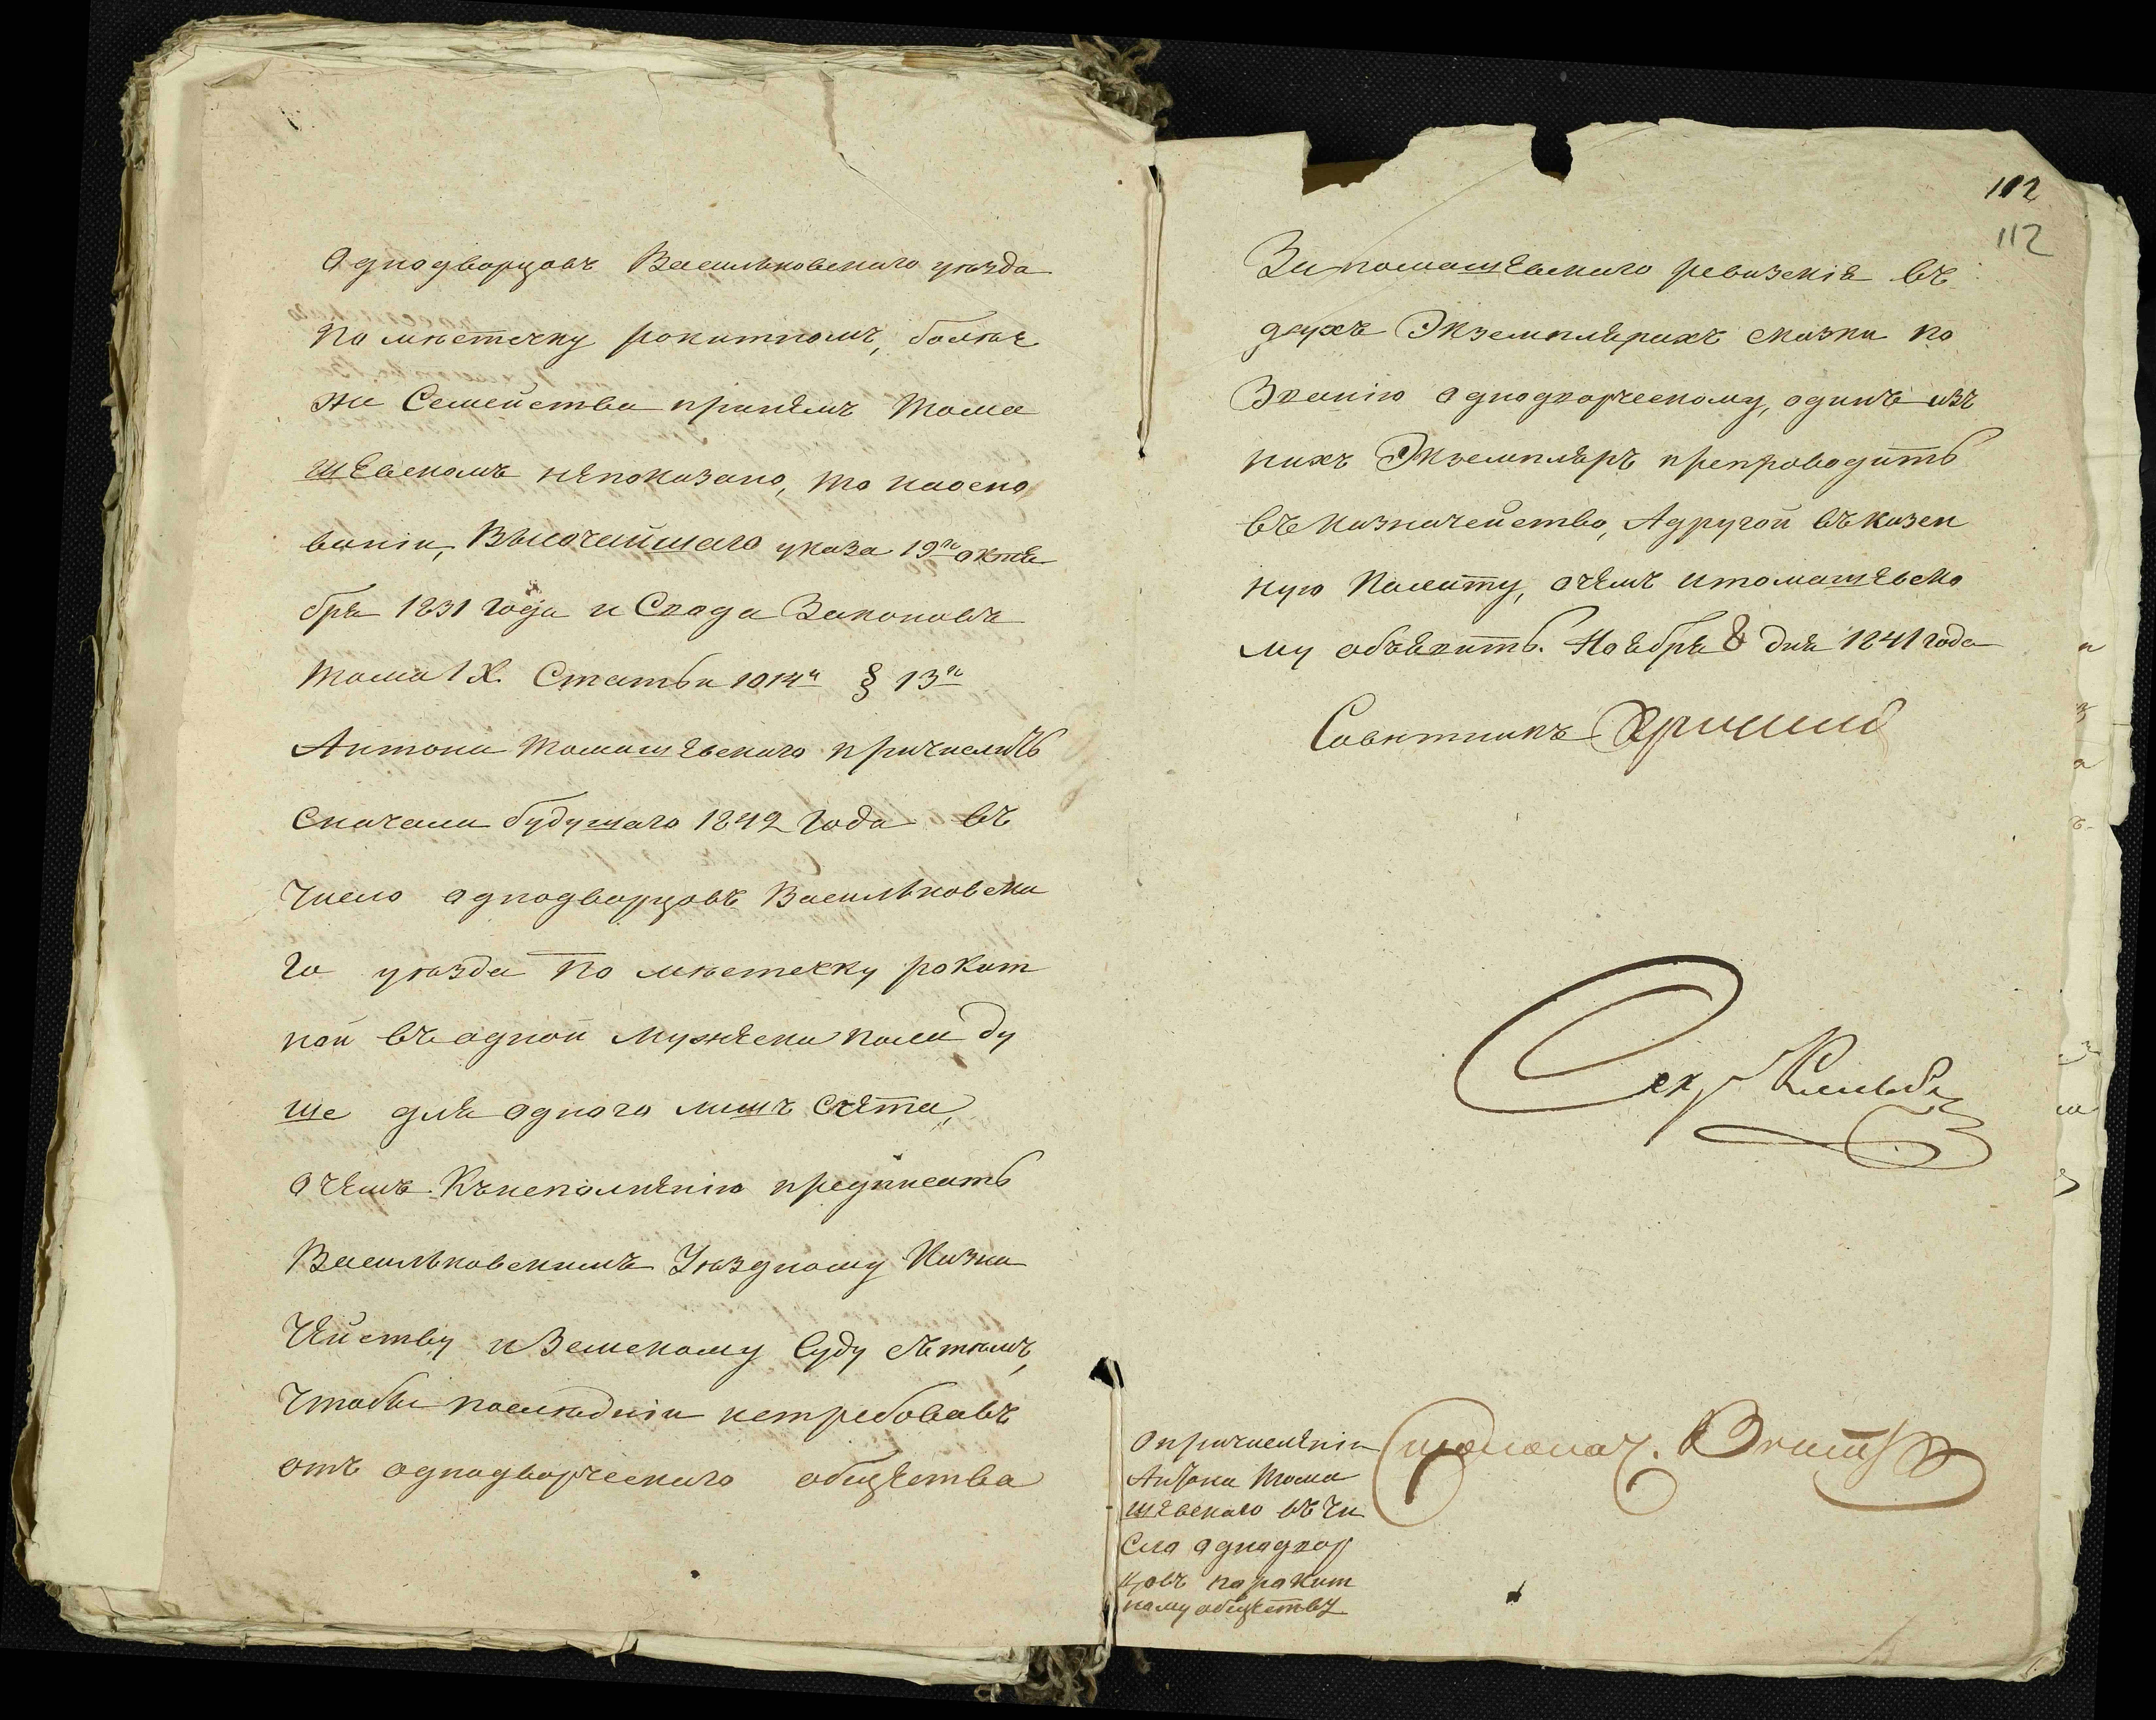 Однодворцовъ Васильковскаго уѣзда
по мѣстечку рокитномъ, болѣе
же Семейства при немъ Тома
шевскомъ непоказано, то наосно
ваніи, Высочайшаго указа 19го октя
бря 1831 года и Свода Законовъ
тома IX. Статьи 1014й § 13го
Антона Томашевскаго причислить
сначала будущаго 1842 года въ
число однодворцовъ Васильковска
го уѣзда по мѣстечку рокит
ной въ одной мужеска пола ду
ше для одного лишъ счета,
очемъ къ исполненію предписать
Васильковскимъ Уѣздному Казна
чейству и Земскому Суду сътемъ,
чтобы последніи истребовавъ
отъ однодворческаго общества
112
112
За томашевскаго ревизскія въ
двухъ Экземплярахъ сказки по
Званію однодворческому, одинъ изъ
нихъ Экземпляръ препроводить
въ казначейство, Адругой въказен
ную Палату, очемъ итомашевско
му объявить. Ноября 8 дня 1841 года
Советникъ
Секр
Опричисленіи
Антона Тома
шевскаго въ чи
сло однодвор
цовъ порокит
ному обществу
Столонач.